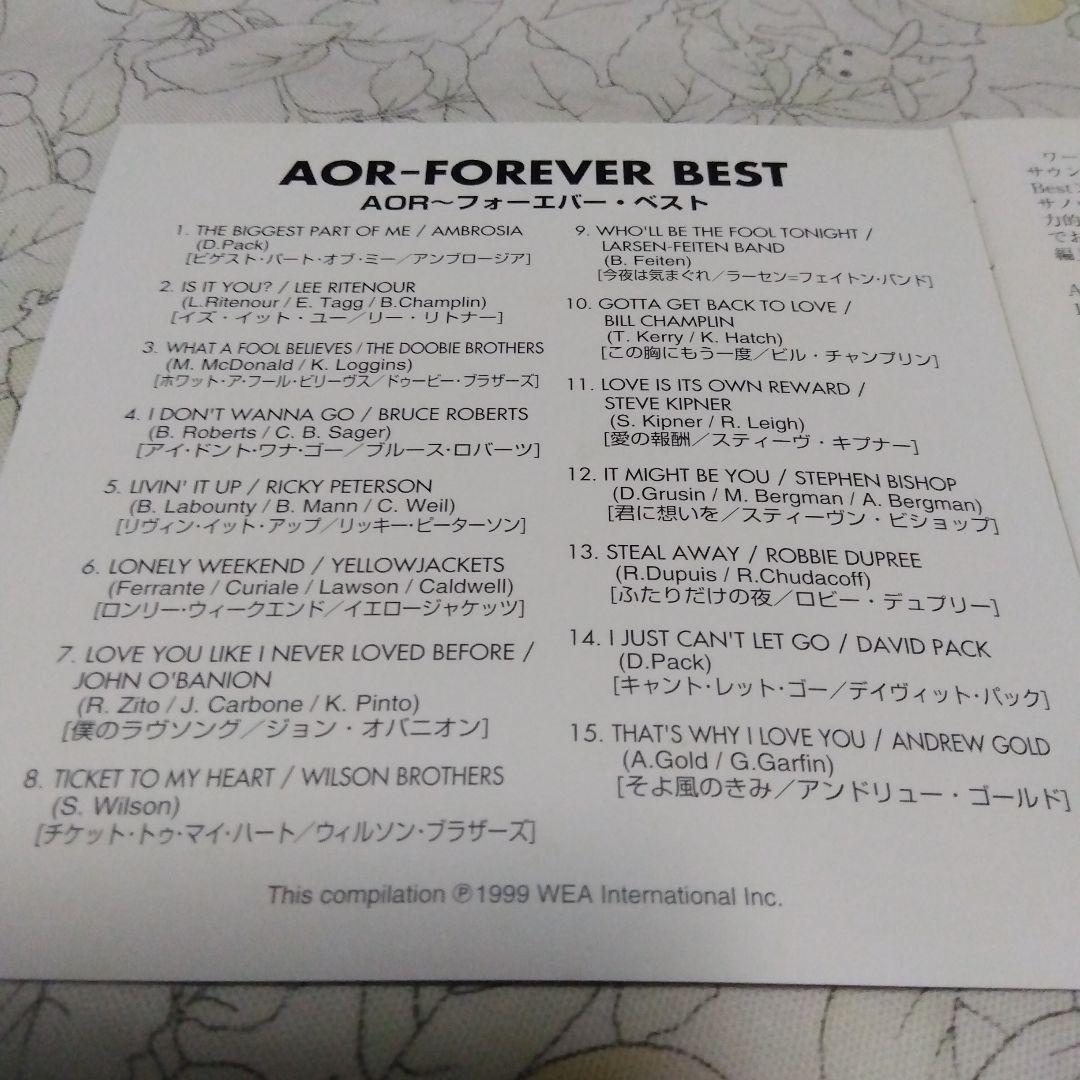 AOR-FOREVER BEST
AOR～フォーエバー・ベスト
1. THE BIGGEST PART OF ME / AMBROSIA
(D.Pack)
[ビゲスト・パート・オブ・ミー／アンブロージア]
2. IS IT YOU? / LEE RITENOUR
(L.Ritenour / E. Tagg / B.Champlin)
[イズ・イット・ユー／リー・リトナー]
3. WHAT A FOOL BELIEVES / THE DOOBIE BROTHERS
(M. McDonald / K. Loggins)
[ホワット・ア・フール・ビリーヴス／ドゥービー・ブラザーズ]
4. I DON'T WANNA GO / BRUCE ROBERTS
(B. Roberts / C. B. Sager)
[アイ・ドント・ワナ・ゴー／ブルース・ロバーツ]
5. LIVIN' IT UP / RICKY PETERSON
(B. Labounty / B. Mann / C. Weil)
[リヴィン・イット・アップ／リッキー・ピーターソン]
6. LONELY WEEKEND / YELLOWJACKETS
(Ferrante / Curiale / Lawson / Caldwell)
[ロンリー・ウィークエンド／イエロージャケッツ]
7. LOVE YOU LIKE I NEVER LOVED BEFORE /
JOHN O'BANION
(R. Zito / J. Carbone / K. Pinto)
[僕のラヴソング／ジョン・オバニオン]
8. TICKET TO MY HEART / WILSON BROTHERS
(S. Wilson)
[チケット・トゥ・マイ・ハート／ウィルソン・ブラザーズ]
9. WHO'LL BE THE FOOL TONIGHT /
LARSEN-FEITEN BAND
(B. Feiten)
[今夜は気まぐれ／ラーセン=フェイトン・バンド]
10. GOTTA GET BACK TO LOVE /
BILL CHAMPLIN
(T. Kerry / K. Hatch)
[この胸にもう一度／ビル・チャンプリン]
11. LOVE IS ITS OWN REWARD /
STEVE KIPNER
(S. Kipner / R. Leigh)
[愛の報酬／スティーヴ・キプナー]
12. IT MIGHT BE YOU / STEPHEN BISHOP
(D.Grusin / M. Bergman / A. Bergman)
[君に想いを／スティーヴン・ビショップ]
13. STEAL AWAY / ROBBIE DUPREE
(R.Dupuis / R.Chudacoff)
[ふたりだけの夜／ロビー・デュプリー]
14. I JUST CAN'T LET GO / DAVID PACK
(D.Pack)
[キャント・レット・ゴー／デイヴィット・パック]
15. THAT'S WHY I LOVE YOU / ANDREW GOLD
(A.Gold / G.Garfin)
[そよ風のきみ／アンドリュー・ゴールド]
This compilation ℗1999 WEA International Inc.
ワー
サウン
Best
サノ
力的
でお
編